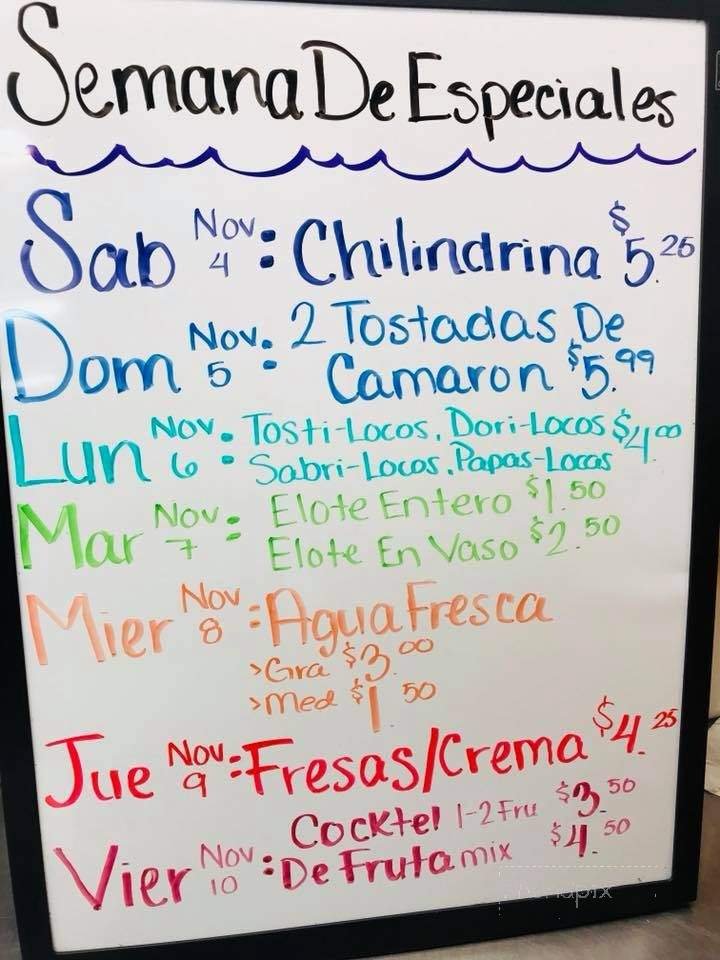 Semana De Especiales
Sab Nov 4 : Chilindrina $5.25
Dom Nov. 5 : 2 Tostadas De
Camaron $5.99
Lun Nov 6 : Tosti-Locos, Dori-Locos $4.00
Sabri-Locos, Papas-Locas
Mar Nov 7 : Elote Entero $1.50
Elote En Vaso $2.50
Mier Nov 8 : Agua Fresca
>Gra $3.00
>Med $1.50
Jue Nov 9 : Fresas/Crema $4.25
Cocktel 1-2 Fru $3.50
Vier Nov 10 : De Fruta mix $4.50